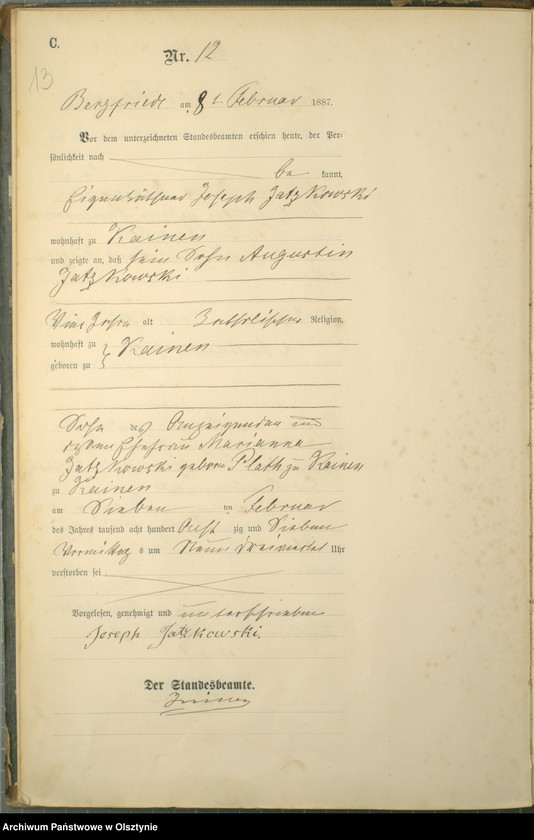 C.
Nr. 12
13
Bergfriede am 8t Februar 1887.
Vor dem unterzeichneten Standesbeamten erschien heute, der Per-
sönlichkeit nach
be kannt,
Eigenkäthner Joseph Jatzkowski
wohnhaft zu Kainen
und zeigte an, daß sein Sohn Augustin
Jatzkowski
Jahre alt Katholischer Religion,
wohnhaft zu } Kainen
geboren zu
Sohn des Anzeigenden und
dessen Ehefrau Marianna
Jatzkowski geborne Plath zu Kainen
zu Kainen
am Sieben ten Februar
des Jahres tausend acht hundert Acht zig und Sieben
Vormittag s um Neun dreiviertel Uhr
verstorben sei
Vorgelesen, genehmigt und unterschrieben
Joseph Jatzkowski.
Der Standesbeamte.
Archiwum Państwowe w Olsztynie